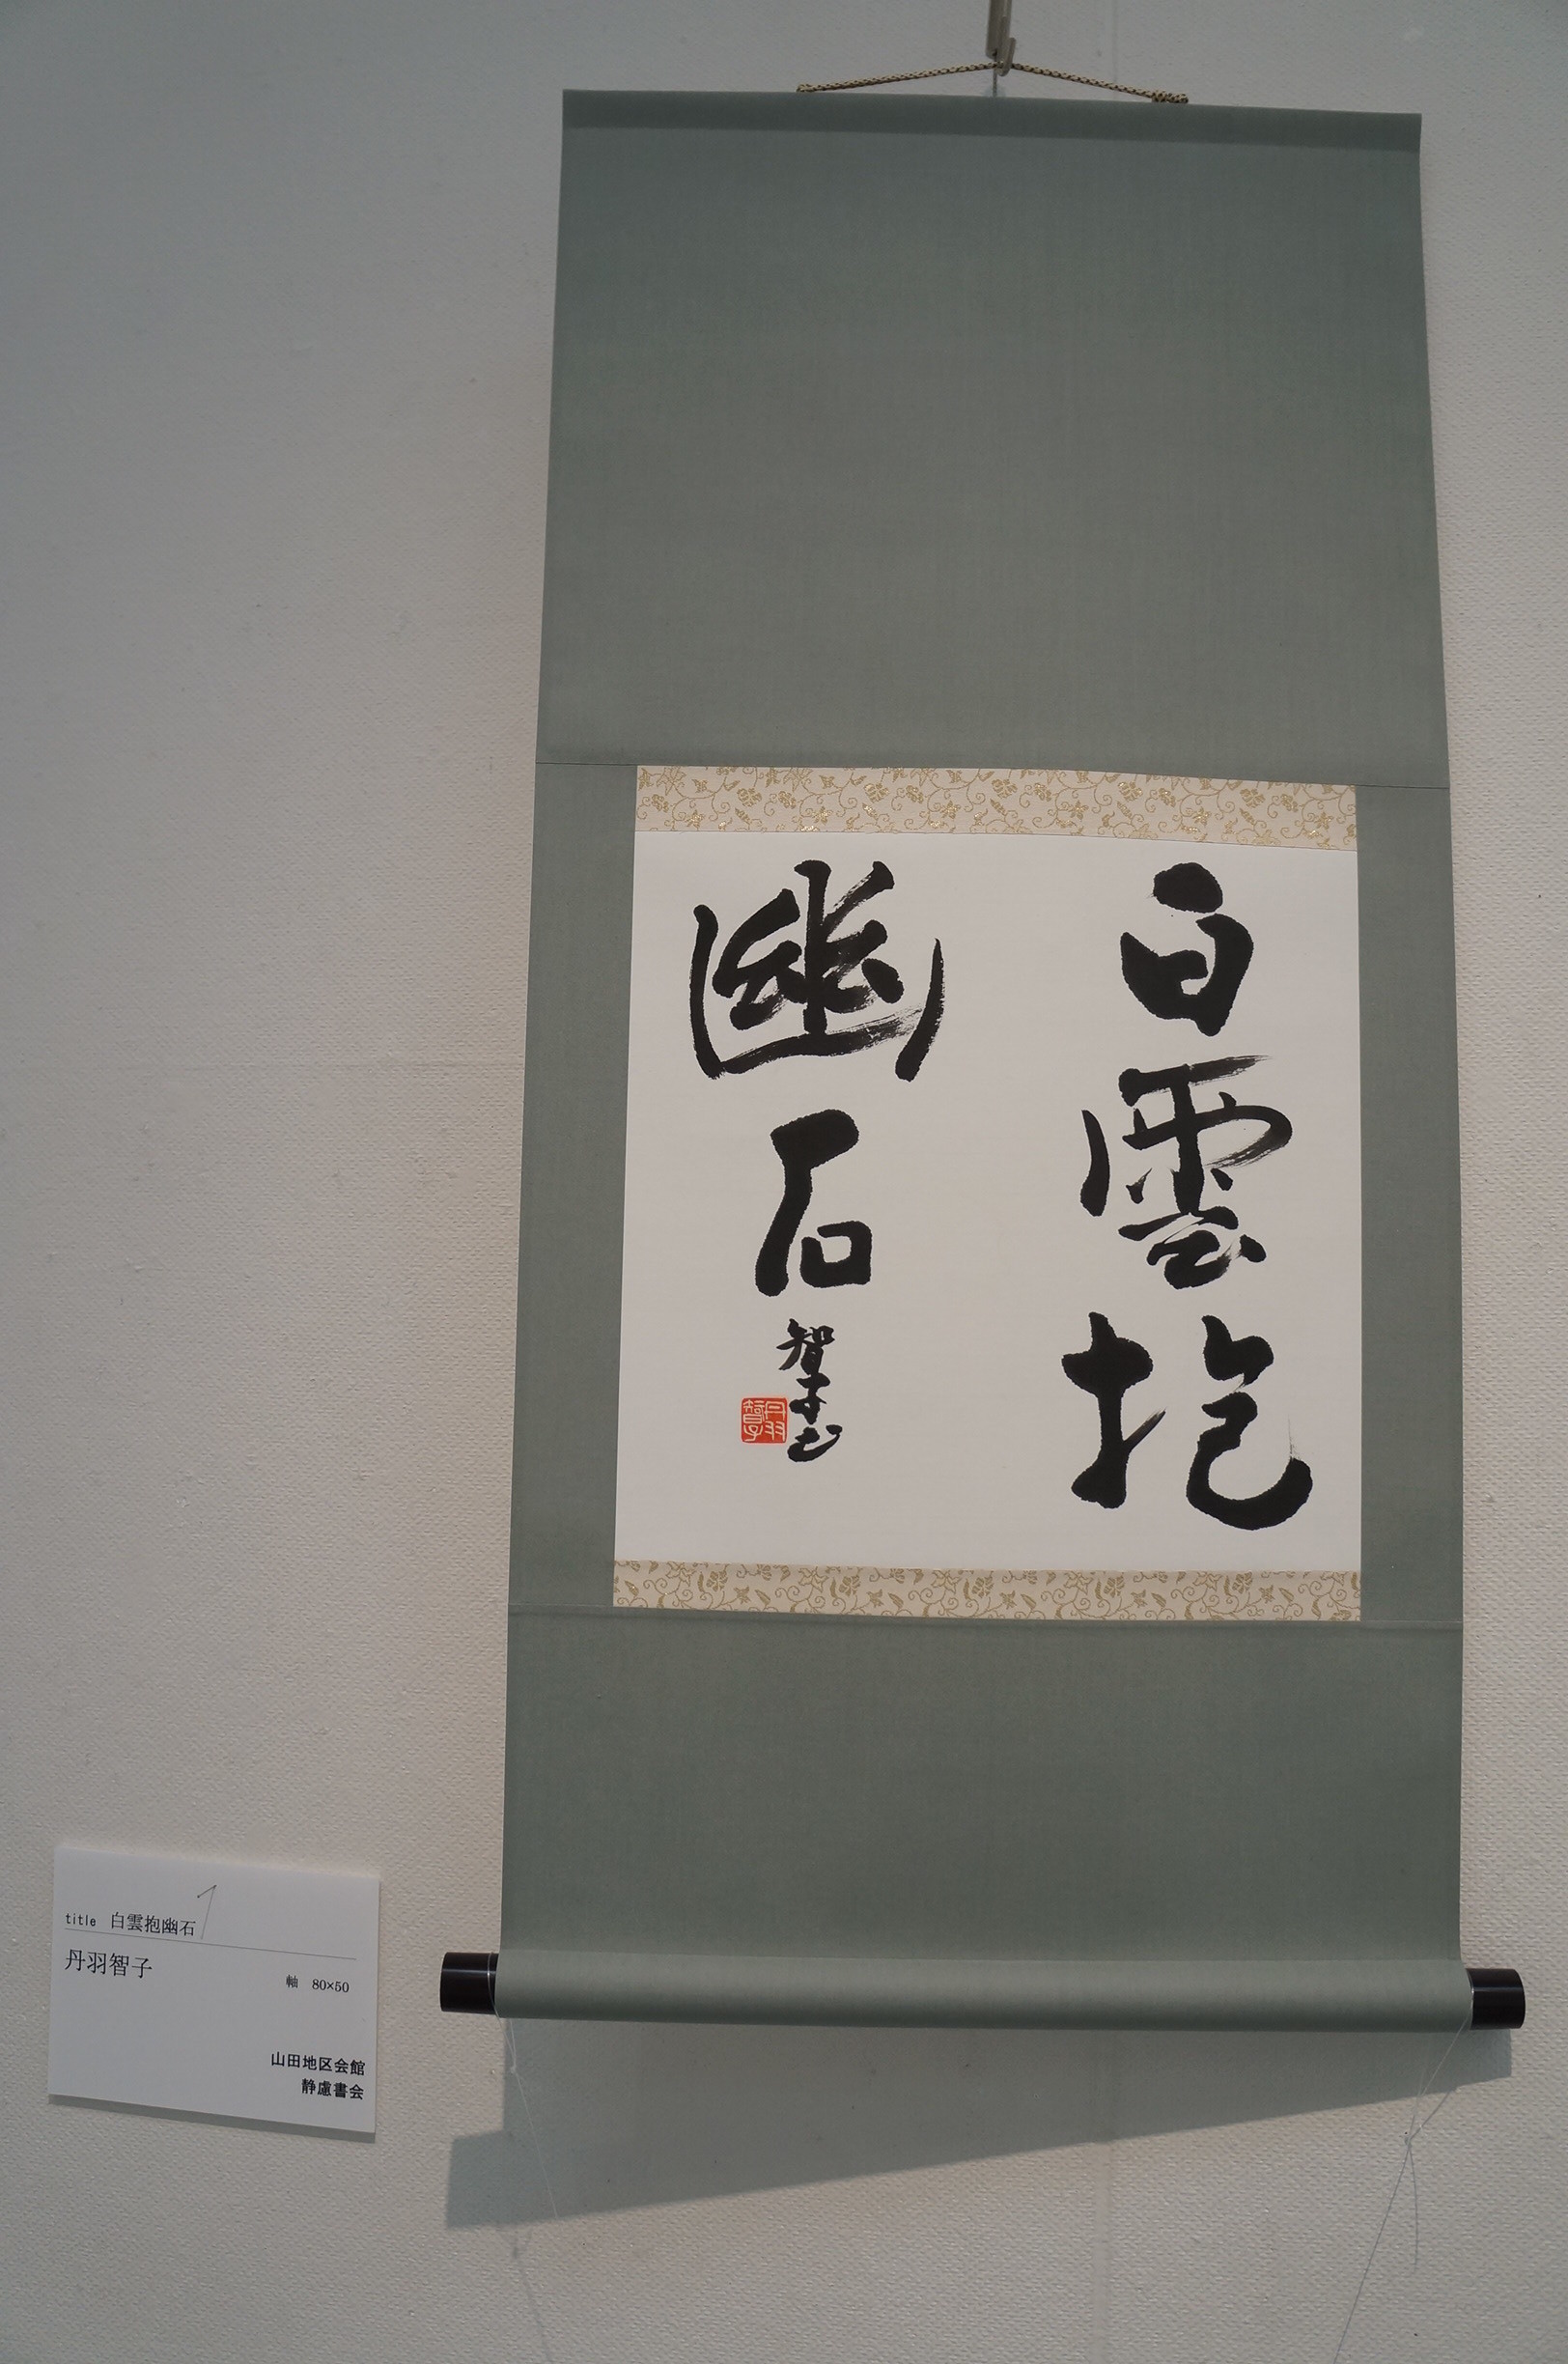 白雲抱
幽石
智子書
丹羽
智子
title 白雲抱幽石
丹羽智子
軸 80×50
山田地区会館
静慮書会